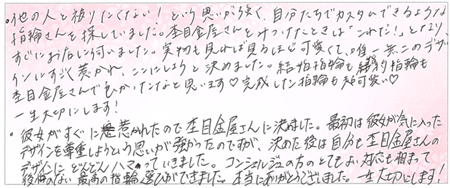 ・他の人と被りたくない！という思いが強く、自分たちでカスタムできるような
指輪さんを探していました。杢目金屋さんをみつけたときは"これだ！"となり、
すぐにお店に伺いました。実物も見れば見るほど可愛くて、唯一無二のデザ
インにすごく惹かれ、ここにしようと決めました。結婚指輪も婚約指輪も
杢目金屋さんで良かったなと思います♡完成した指輪も超可愛い♡
一生大切にします！
・彼女がすぐに惹かれたので杢目金屋さんに決めました。最初は彼女が気に入った
デザインを尊重しようという思いが強かったのですが、決めた後は自分も杢目金屋さんの
デザインに どんどんハマっていきました。コンシェルジュの方のとてもよい対応も相まって
後悔のない最高の指輪選びができました。本当にありがとうございました。一生大切にします！